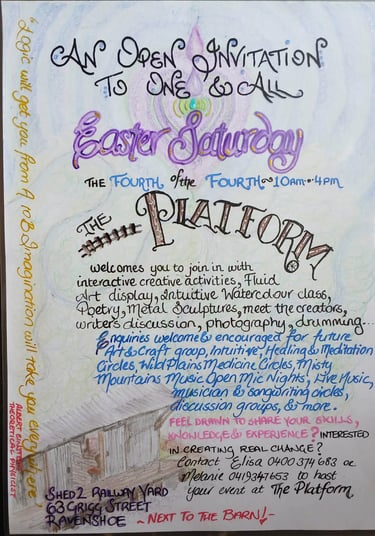 An Open Invitation
To One & All
Easter Saturday
The Fourth of the Fourth 10am - 4pm
The Platform
welcomes you to join in with
interactive creative activities, Fluid
Art display, Intuitive Watercolour class,
Poetry, Metal Sculptures, meet the creators,
writers discussion, photography, drumming...
Enquiries welcome & encouraged for future
Art & Craft group, Intuitive, Healing & Meditation
Circles, Wild Plains Medicine Circles, Misty
Mountains Music Open Mic Nights, Live Music,
musician & songwriting circles,
discussion groups, & more.
Feel drawn to share your skills,
knowledge & experience? Interested
in creating real change?
Contact Elisa 0400 374 683 or
Melanie 0419347653 to host
your event at The Platform
Shed 2 Railway Yard
63 Grigg Street
Ravenshoe
~ Next to the Barn! ~
"Logic will get you from A to B Imagination will take you everywhere"
Albert Einstein
Theoretical Physicist